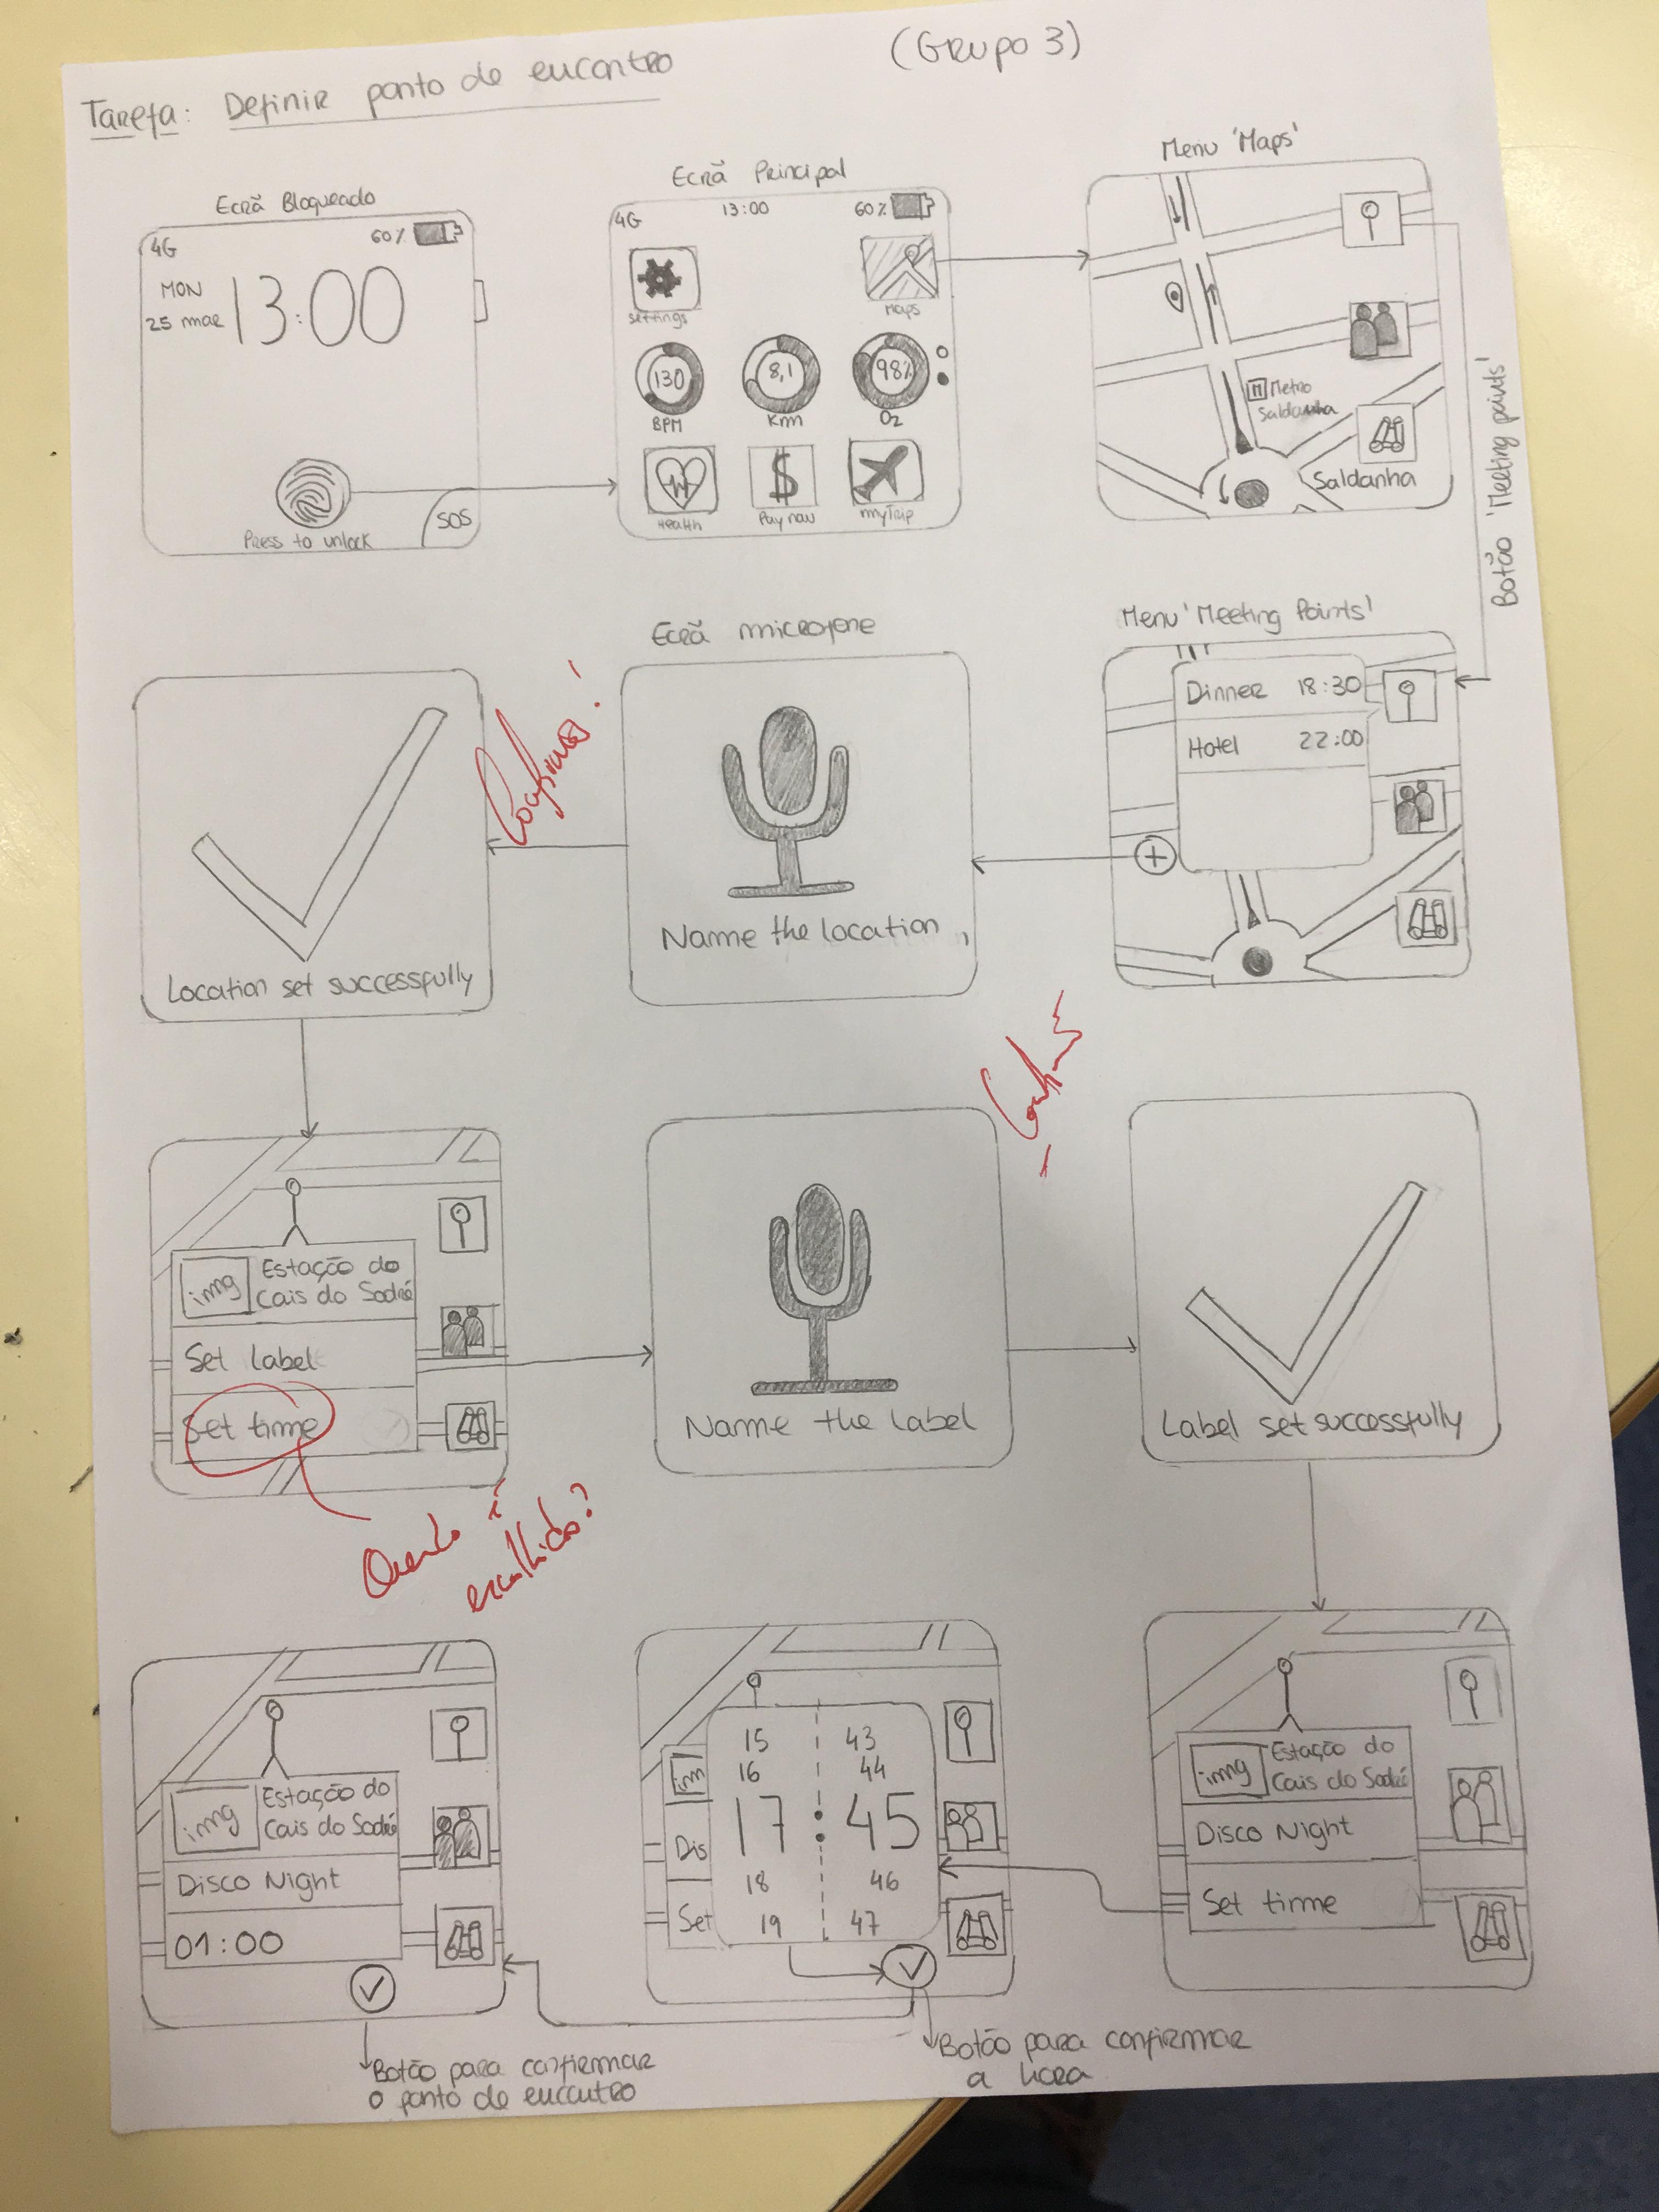 Tarefa: Definir ponto de encontro
(Grupo 3)
Ecrã Bloqueado
4G
60%
MON
25 mar
13:00
Press to unlock
SOS
Ecrã Principal
4G
13:00
60%
settings
Maps
130
BPM
8,1
Km
98%
O2
Health
$
Pay now
myTrip
Menu 'Maps'
M Metro
Saldanha
Saldanha
Botão 'Meeting points'
Menu 'Meeting Points'
Dinner 18:30
Hotel 22:00
+
Ecrã microfone
Name the location
Location set successfully
img
Estação do
Cais do Sodré
Set label
Set time
Quando é
escolhido?
Name the label
Label set successfully
img
Estação do
Cais do Sodré
Disco Night
Set time
im
Dis
Set
15 43
16 44
17 : 45
18 46
19 47
Botão para confirmar
a hora
img
Estação do
Cais do Sodré
Disco Night
01:00
Botão para confirmar
o ponto de encontro